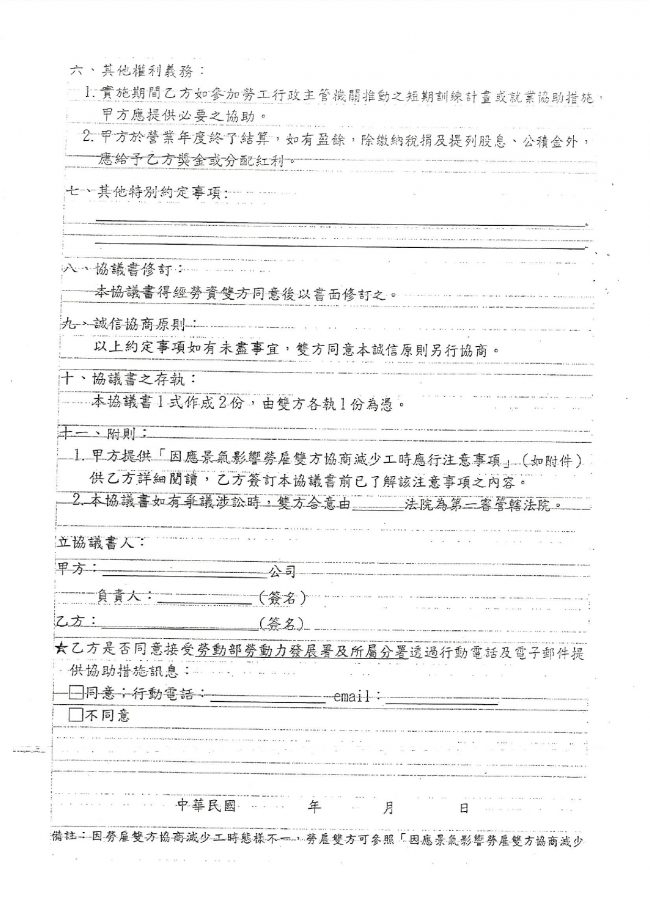 六、其他權利義務：
1.實施期間乙方如參加勞工行政主管機關推動之短期訓練計畫或就業協助措施，
甲方應提供必要之協助。
2.甲方於營業年度終了結算，如有盈餘，除繳納稅捐及提列股息、公積金外，
應給予乙方獎金或分配紅利。
七、其他特別約定事項：
八、協議書修訂：
本協議書得經勞資雙方同意後以書面修訂之。
九、誠信協商原則：
以上約定事項如有未盡事宜，雙方同意本誠信原則另行協商。
十、協議書之存執：
本協議書1式作成2份，由雙方各執1份為憑。
十一、附則：
1.甲方提供「因應景氣影響勞雇雙方協商減少工時應行注意事項」（如附件）
供乙方詳細閱讀，乙方簽訂本協議書前已了解該注意事項之內容。
2.本協議書如有爭議涉訟時，雙方合意由______法院為第一審管轄法院。
立協議書人：
甲方：____________公司
負責人：____________（簽名）
乙方：____________（簽名）
★乙方是否同意接受勞動部勞動力發展署及所屬分署透過行動電話及電子郵件提
供協助措施訊息：
□同意；行動電話：____________ email：____________
□不同意
中華民國 年 月 日
備註：因勞雇雙方協商減少工時態樣不一，勞雇雙方可參照「因應景氣影響勞雇雙方協商減少